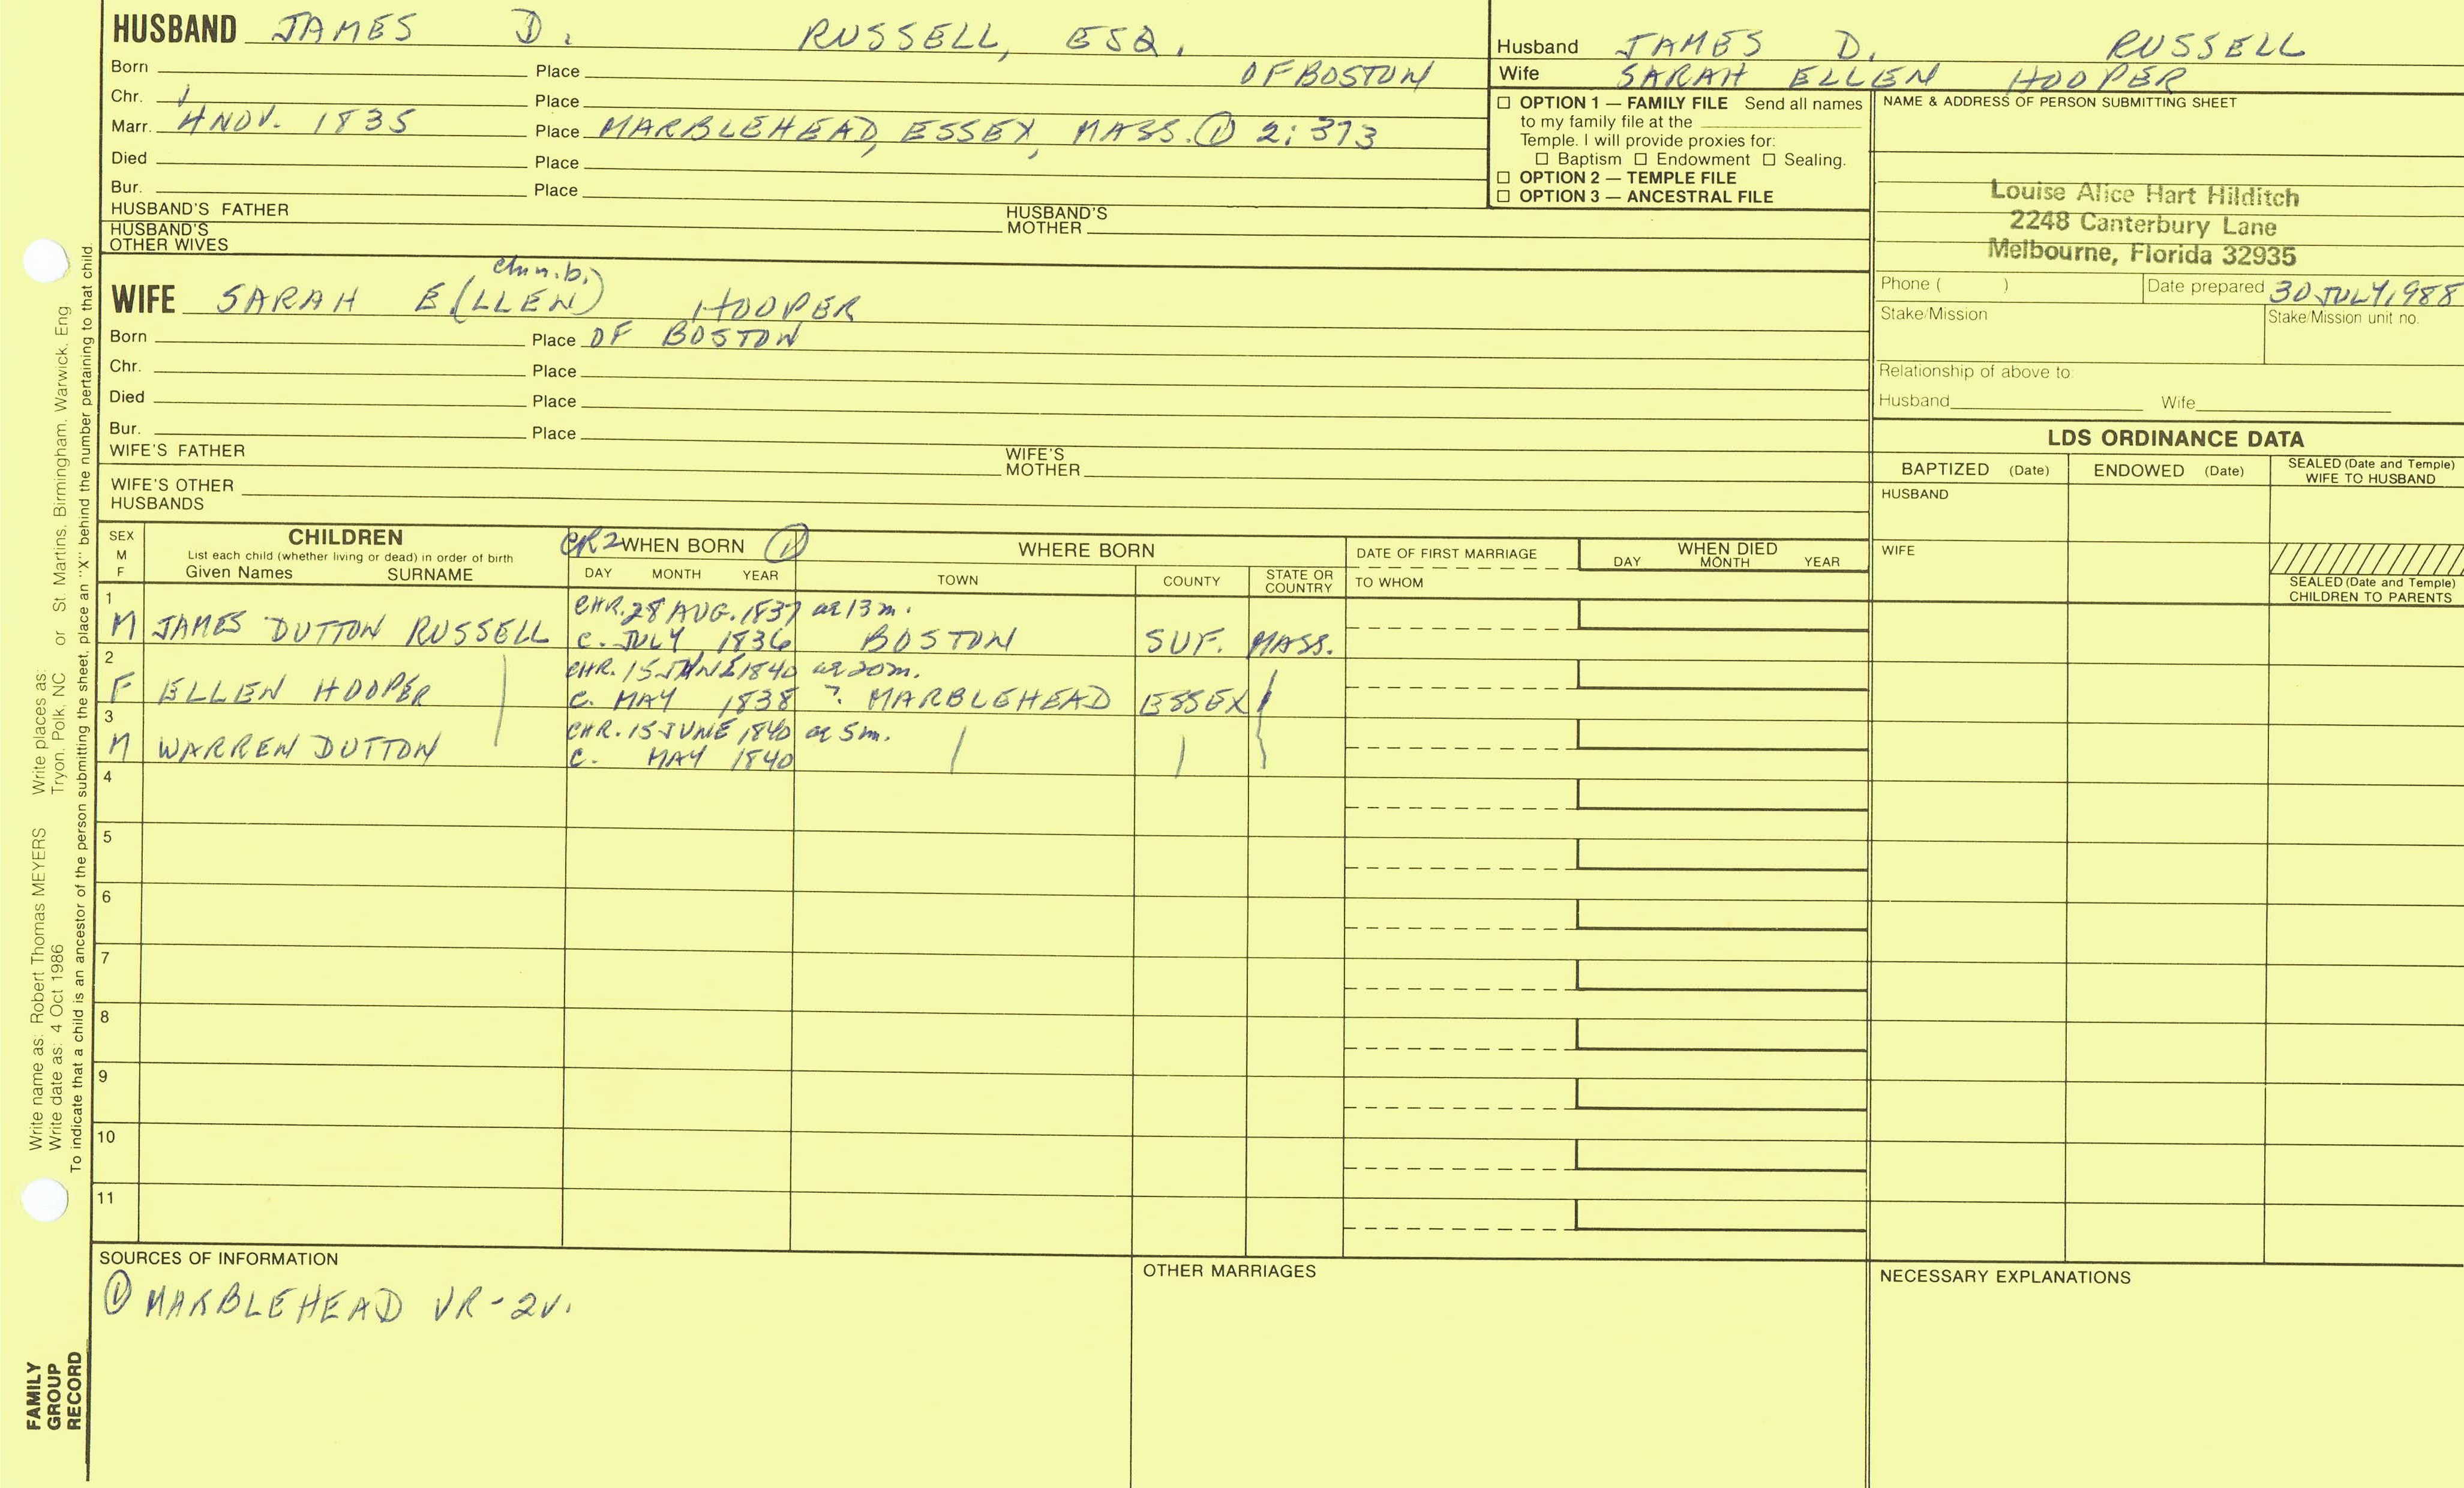 HUSBAND JAMES D. RUSSELL, ESQ.
Born Place OF BOSTON
Chr. Place
Marr. 4 NOV. 1835 Place MARBLEHEAD, ESSEX, MASS. ① 2:373
Died Place
Bur. Place
HUSBAND'S FATHER HUSBAND'S MOTHER
HUSBAND'S OTHER WIVES
WIFE SARAH E(LLEN) HOOPER
chn.b.
Born Place OF BOSTON
Chr. Place
Died Place
Bur. Place
WIFE'S FATHER WIFE'S MOTHER
WIFE'S OTHER HUSBANDS
Husband JAMES D. RUSSELL
Wife SARAH ELLEN HOOPER
☐ OPTION 1 — FAMILY FILE Send all names
to my family file at the
Temple. I will provide proxies for:
☐ Baptism ☐ Endowment ☐ Sealing.
☐ OPTION 2 — TEMPLE FILE
☐ OPTION 3 — ANCESTRAL FILE
NAME & ADDRESS OF PERSON SUBMITTING SHEET
Louise Alice Hart Hilditch
2248 Canterbury Lane
Melbourne, Florida 32935
Phone ( ) Date prepared 30 JULY 1988
Stake/Mission Stake/Mission unit no.
Relationship of above to:
Husband Wife
LDS ORDINANCE DATA
BAPTIZED (Date) ENDOWED (Date) SEALED (Date and Temple) WIFE TO HUSBAND
HUSBAND
WIFE
SEALED (Date and Temple) CHILDREN TO PARENTS
SEX M F
CHILDREN
List each child (whether living or dead) in order of birth
Given Names SURNAME
CR2 WHEN BORN ①
DAY MONTH YEAR
WHERE BORN
TOWN COUNTY STATE OR COUNTRY
DATE OF FIRST MARRIAGE
TO WHOM
WHEN DIED
DAY MONTH YEAR
1 CHR. 28 AUG. 1837 ae 13 m.
M JAMES DUTTON RUSSELL C. JULY 1836 BOSTON SUF. MASS.
2 CHR. 15 JUNE 1840 ae 20m.
F ELLEN HOOPER C. MAY 1838 ? MARBLEHEAD ESSEX
3 CHR. 15 JUNE 1840 ae 5m.
M WARREN DUTTON C. MAY 1840
4
5
6
7
8
9
10
11
SOURCES OF INFORMATION
① MARBLEHEAD VR-2V.
OTHER MARRIAGES
NECESSARY EXPLANATIONS
Write name as: Robert Thomas MEYERS Write places as:
Write date as: 4 Oct 1986 Tryon, Polk, NC or St. Martins, Birmingham, Warwick, Eng
To indicate that a child is an ancestor of the person submitting the sheet, place an "X" behind the number pertaining to that child.
FAMILY
GROUP
RECORD